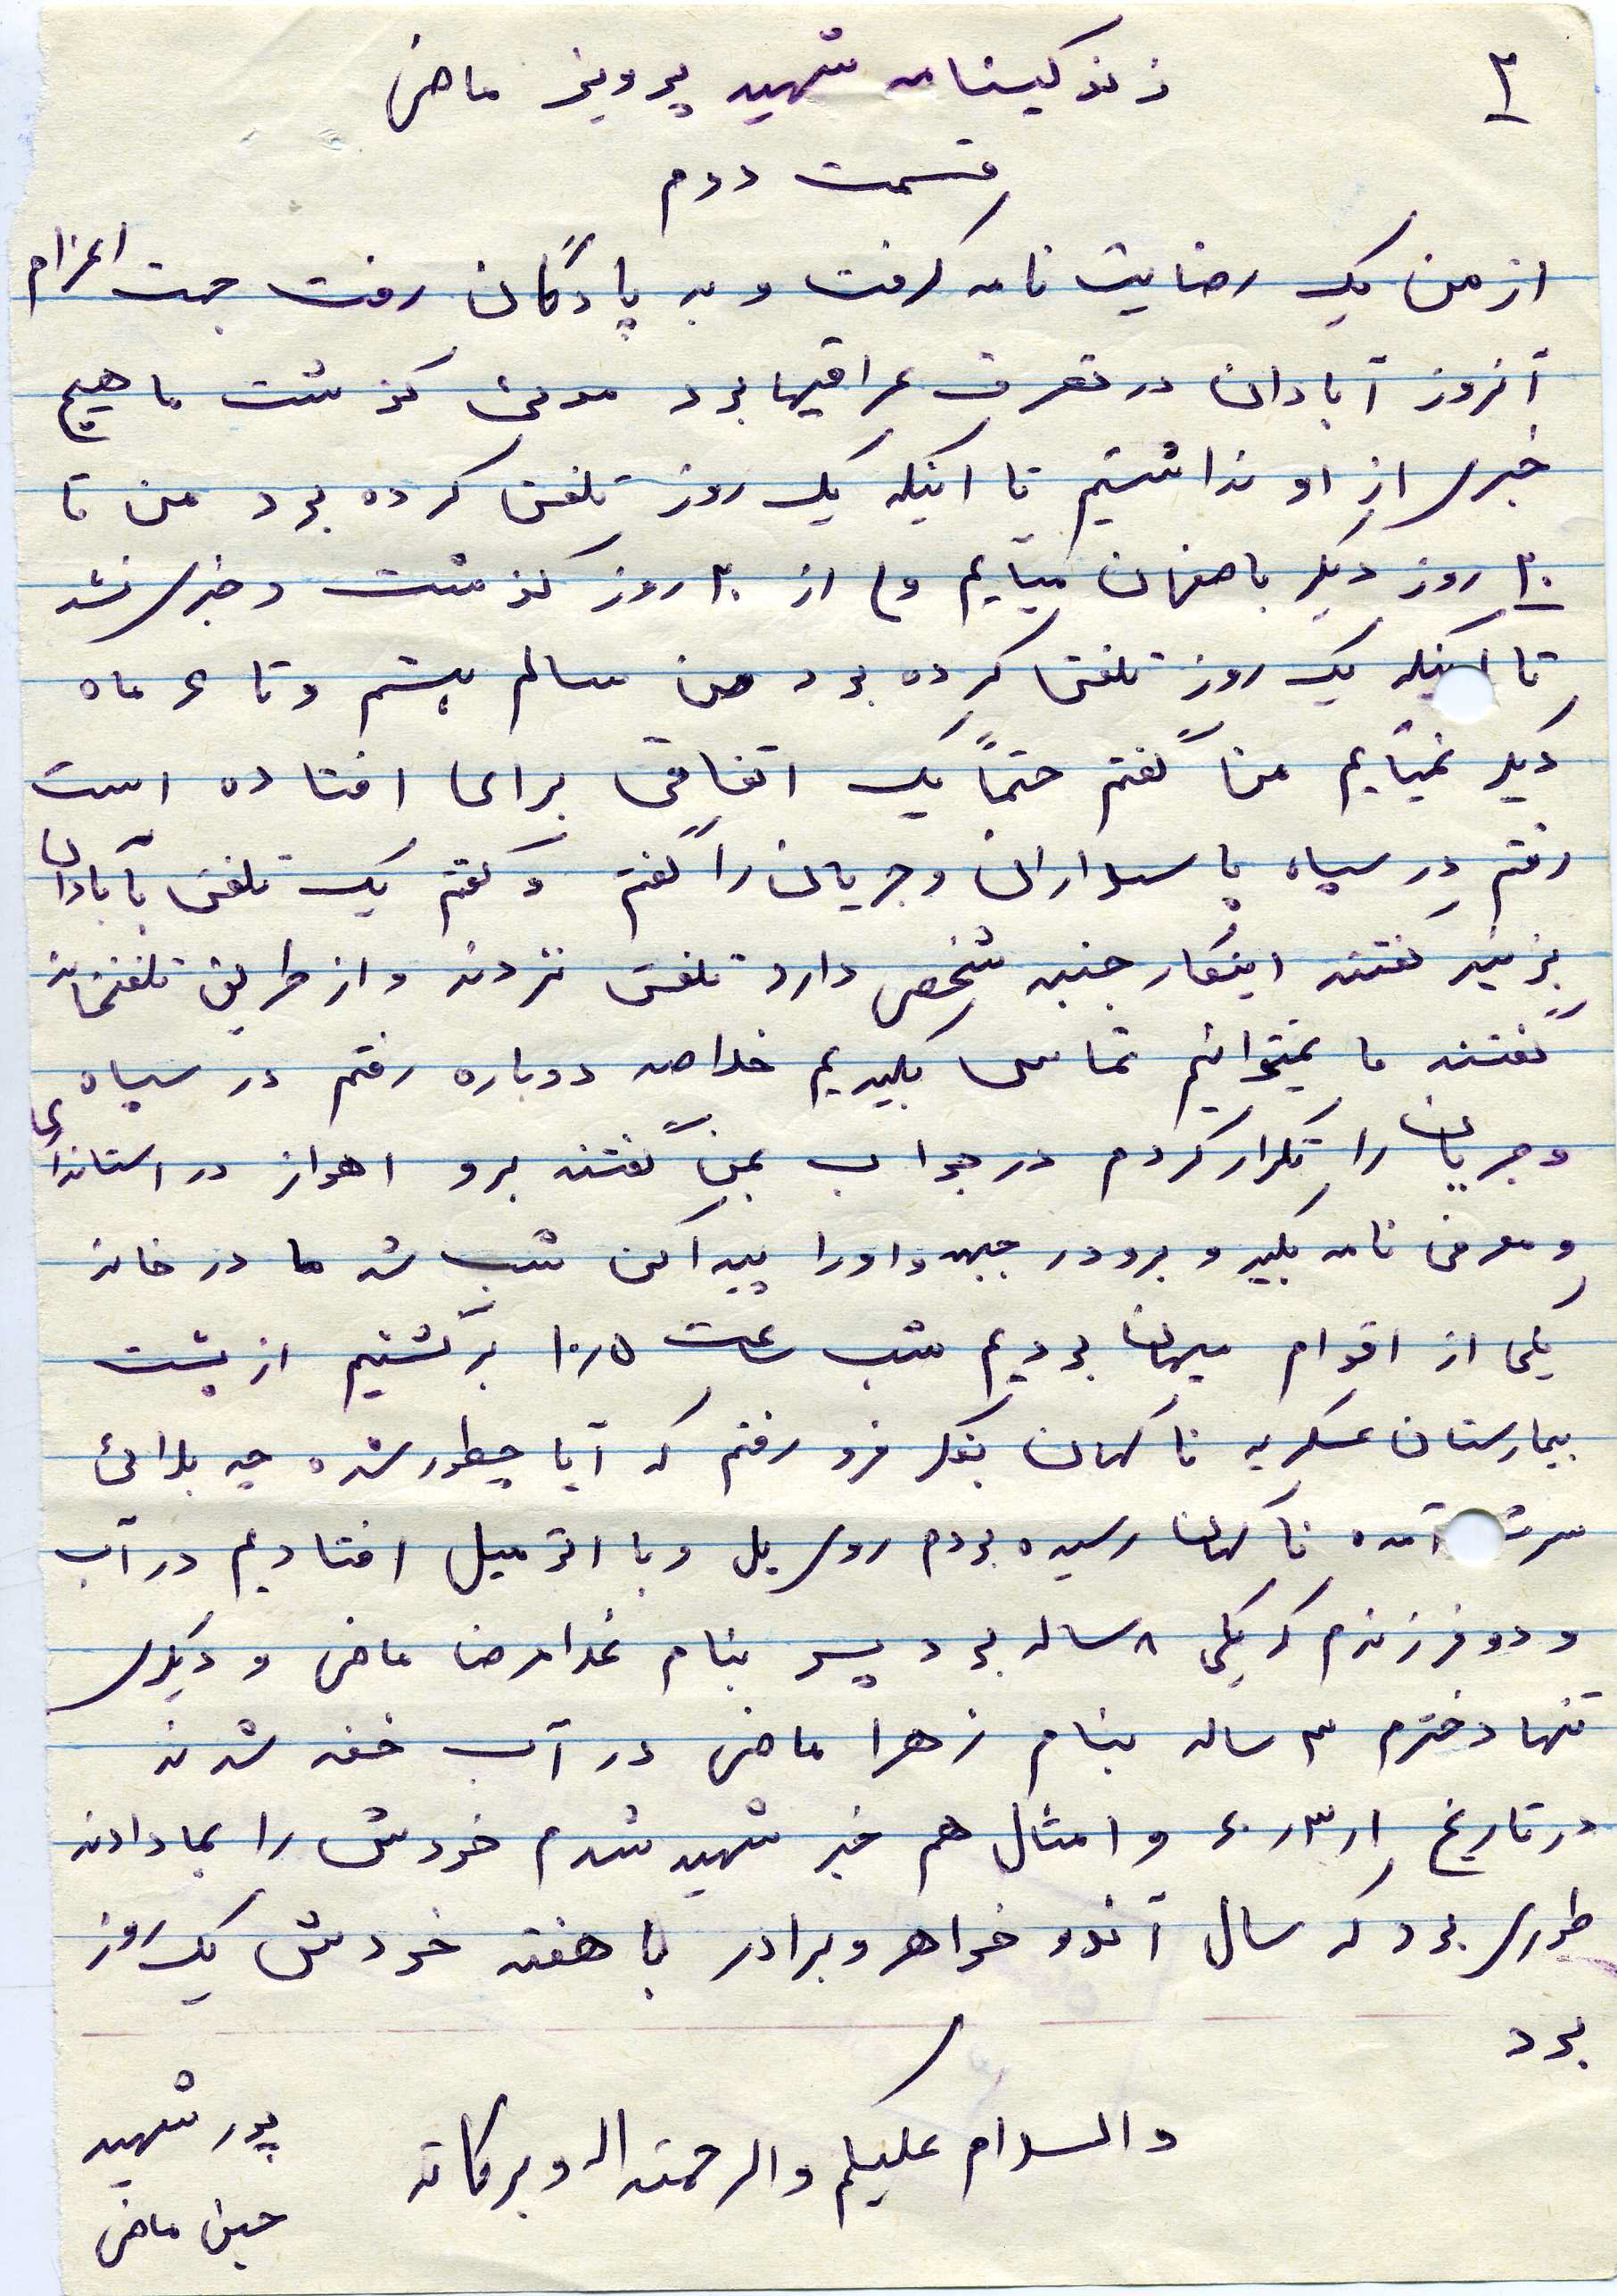 ۲
زندگینامه شهید پرویز ماضی
قسمت دوم
از من یک رضایت نامه گرفت و به پادگان رفت جهت اعزام
آنروز آبادان در تصرف عراقیها بود مدتی گذشت ما هیچ
خبری از او نداشتیم تا اینکه یک روز تلفن کرده بود من تا
۲۰ روز دیگر باصفهان میآیم ولی از ۲۰ روز گذشت و خبری نشد
تا اینکه یک روز تلفن کرده بود من سالم هستم و تا ۶ ماه
دیگر نمیآیم من گفتم حتماً یک اتفاقی برای افتاده است
رفتم در سپاه پاسداران و جریان را گفتم و گفتم یک تلفن بآبادان
بزنید گفتند اینکار جنبه شخصی دارد تلفن نزدند و از طریق تلفنخانه
گفتند ما نمیتوانیم تماس بگیریم خلاصه دوباره رفتم در سپاه
و جریان را تکرار کردم در جواب بمن گفتند برو اهواز در استانداری
و معرفی نامه بگیر و برو در جبهه و اورا پیدا کن شب شد ما در خانه
یکی از اقوام میهمان بودیم شب ساعت ۱۰/۵ برگشتیم از پشت
بیمارستان عسکریه ناگهان بفکر فرو رفتم که آیا چطور شده چه بلائی
سرش آمده ناگهان رسیده بودم روی پل و با اتومبیل افتادیم در آب
و دو فرزندم که یکی ۸ ساله بود پسر بنام غلامرضا ماضی و دیگری
تنها دخترم ۳ ساله بنام زهرا ماضی در آب خفه شدند
در تاریخ ۱ر۳ر۶۰ و امثال هم خبر شهید شدم خودش را بما دادند
طوری بود که سال آندو خواهر و برادر با هفته خودش یک روز
بود
والسلام علیکم والرحمته اله وبرکاته
پدر شهید
حسن ماضی